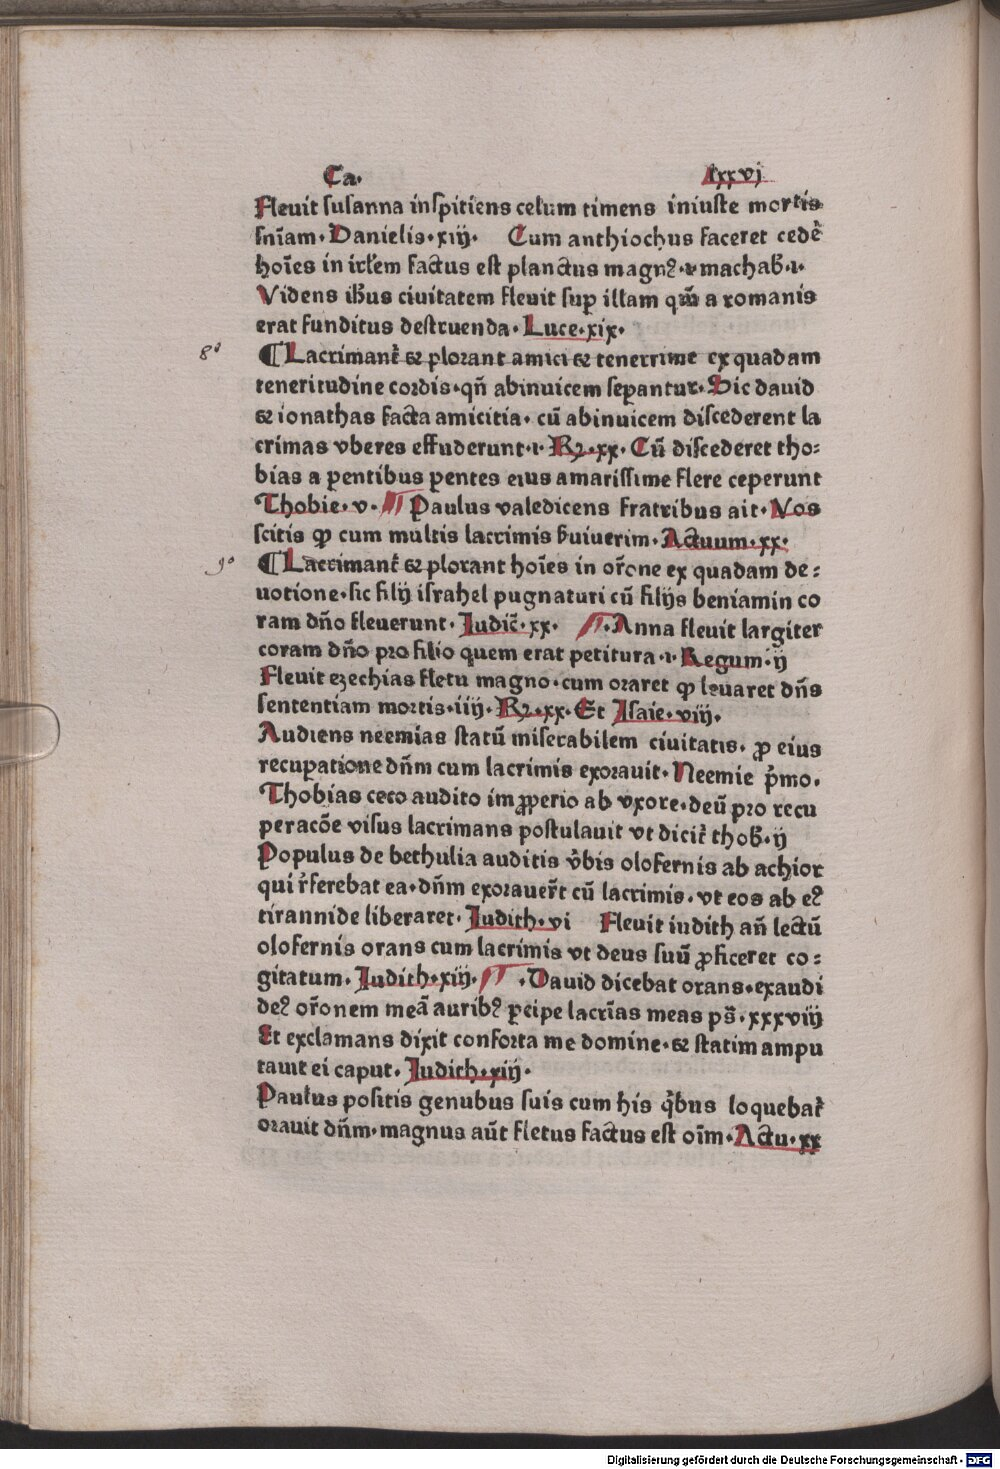 Ca. lxxvj
Fleuit susanna inspitiens celum timens iniuste mortis
sniam. Danielis. xiij. Cum anthiochus faceret cedē
hoīes in irl'em factus est planctus magnꝰ. i. machab̄. i.
Videns ih̄us ciuitatem fleuit sup illam qm̄ a romanis
erat funditus destruenda. Luce. xix.
8º
¶ Lacrimant᷑ & plorant amici & tenerrime ex quadam
teneritudine cordis. qn̄ abinuicem sepantur. Sic dauid
& ionathas facta amicitia. cū abinuicem discederent la
crimas vberes effuderunt. i. Rꝝ. xx. Cū discederet tho⸗
bias a pentibus pentes eius amarissime flere ceperunt
Thobie. v. Paulus valedicens fratribus ait. Nos
scitis ꝙ cum multis lacrimis s̄uiuerim. Actuum. xx.
9º
¶ Lacrimant᷑ & plorant hoīes in or̄one ex quadam de⸗
uotione. sic filij israhel pugnaturi cū filijs beniamin co
ram dn̄o fleuerunt. Judic̄. xx. Anna fleuit largiter
coram dn̄o pro filio quem erat petitura. i. Regum. ij
Fleuit ezechias fletu magno. cum oraret ꝙ leuaret dn̄s
sententiam mortis. iiij. Rꝝ. xx. Et Isaie. viij.
Audiens neemias statū miserabilem ciuitatis. ꝓ eius
recupatione dn̄m cum lacrimis exorauit. Neemie p̄mo.
Thobias ceco audito imꝓꝑerio ab vxore. deū pro recu
peracōe visus lacrimans postulauit vt dicit᷑ thob̄. ij
Populus de bethulia auditis v̄bis olofernis ab achior
qui r̄ferebat ea. dn̄m exorauer̄t cū lacrimis. vt eos ab eꝰ
tirannide liberaret. Judith. vi Fleuit iudith an̄ lectū
olofernis orans cum lacrimis vt deus suū ꝓficeret co⸗
gitatum. Judith. xiij. Dauid dicebat orans. exaudi
deꝰ or̄onem meā auribꝰ ꝑcipe lacrīas meas ps̄. xxxviij
Et exclamans dixit conforta me domine. & statim ampu
tauit ei caput. Judith. xiij.
Paulus positis genubus suis cum his q̄bus loquebat᷑
orauit dn̄m. magnus aūt fletus factus est oīm. Actu. xx
Digitalisierung gefördert durch die Deutsche Forschungsgemeinschaft - DFG